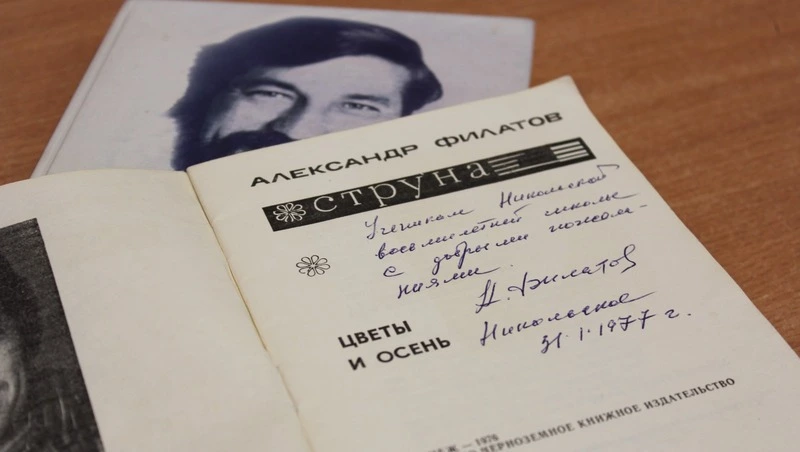 АЛЕКСАНДР ФИЛАТОВ
струна
Ученикам Никольской
восьмилетней школы
с добрыми пожела-
ниями.
А. Филатов
ЦВЕТЫ
И ОСЕНЬ
Никольское
31.I.1977 г.
Ж — 1976
ЧЕРНОЗЕМНОЕ КНИЖНОЕ ИЗДАТЕЛЬСТВО